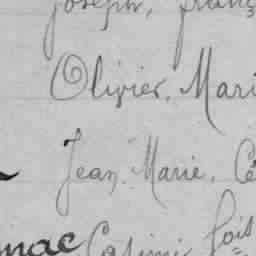 Joseph, franç
Olivier, Mari
Jean Marie, Cé
nac Casimi fois